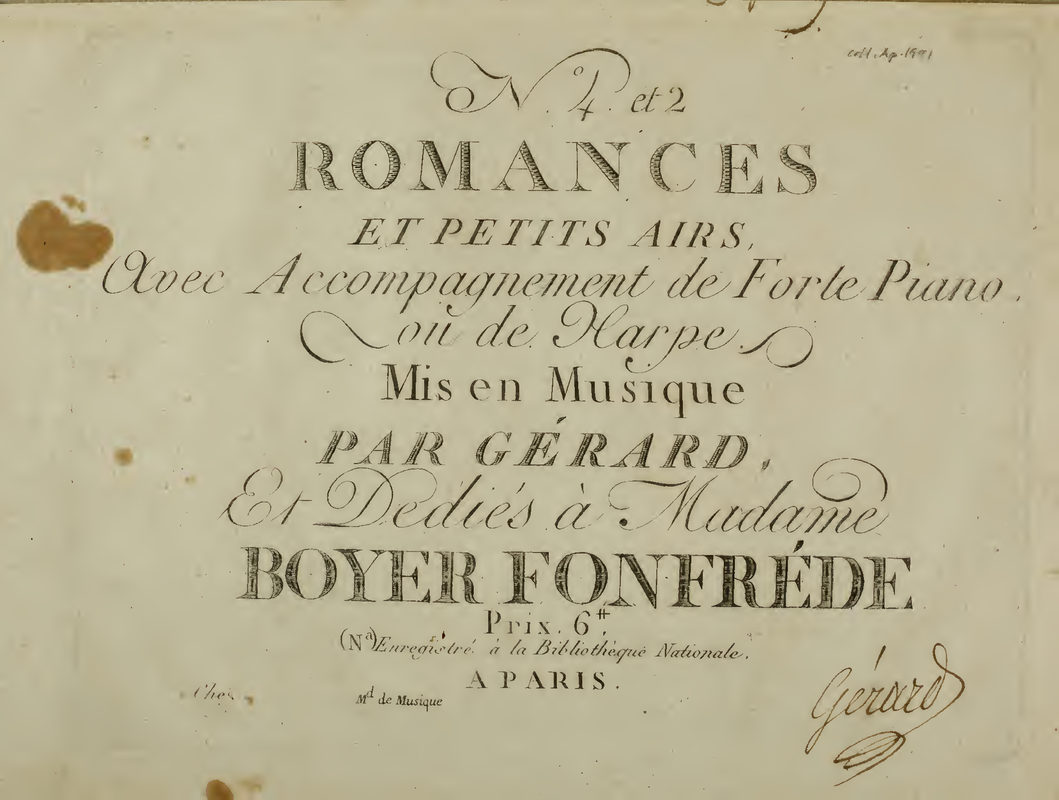 coll. Ap. 1991
N.º 4. et 2
ROMANCES
ET PETITS AIRS,
Avec Accompagnement de Forte Piano.
ou de Harpe.
Mis en Musique
PAR GÉRARD,
Et Dediés à Madame
BOYER FONFRÉDE
Prix. 6₶.
(Nª) Enregistré à la Bibliothéque Nationale.
A PARIS.
Ches
Mᵈ de Musique
Gérard